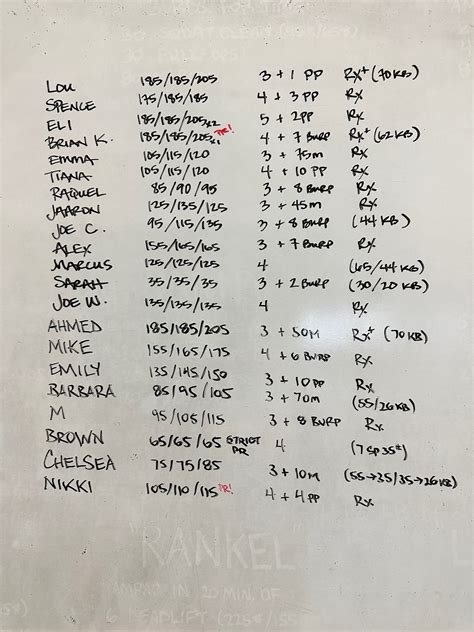 LOU 185/185/205 3 + 1 PP Rx+ (70KB)
SPENCE 175/185/185 4 + 3 PP Rx
ELI 185/185/205x2 5 + 2PP Rx
BRIAN K. 185/185/205x1 PR! 4 + 7 BURP Rx+ (62KB)
EMMA 105/115/120 3 + 75m Rx
TIANA 105/115/120 4 + 10 PP Rx
RAQUEL 85/90/95 3 + 8 BURP Rx
JAARON 125/135/125 3 + 45m Rx
JOE C. 95/115/135 3 + 8 BURP (44KB)
ALEX 155/165/165 3 + 7 BURP Rx
MARCUS 125/125/125 4 (65/44KB)
SARAH 35/35/35 3 + 2 BURP (30/20KB)
JOE W. 135/135/135 4 Rx
AHMED 185/185/205 3 + 50M Rx+ (70KB)
MIKE 155/165/175 4 + 6 BURP Rx
EMILY 135/145/150 3 + 10 PP Rx
BARBARA 85/95/105 3 + 70m (55/26KB)
M 95/105/115 3 + 8 BURP Rx
BROWN 65/65/65 STRICT PR 4 (7SP35#)
CHELSEA 75/75/85 3 + 10m (55→35/35→26KB)
NIKKI 105/110/115 PR! 4 + 4 PP Rx
"RANKEL"
AMRAP IN 20 MIN. OF
6 DEADLIFT (225#/155